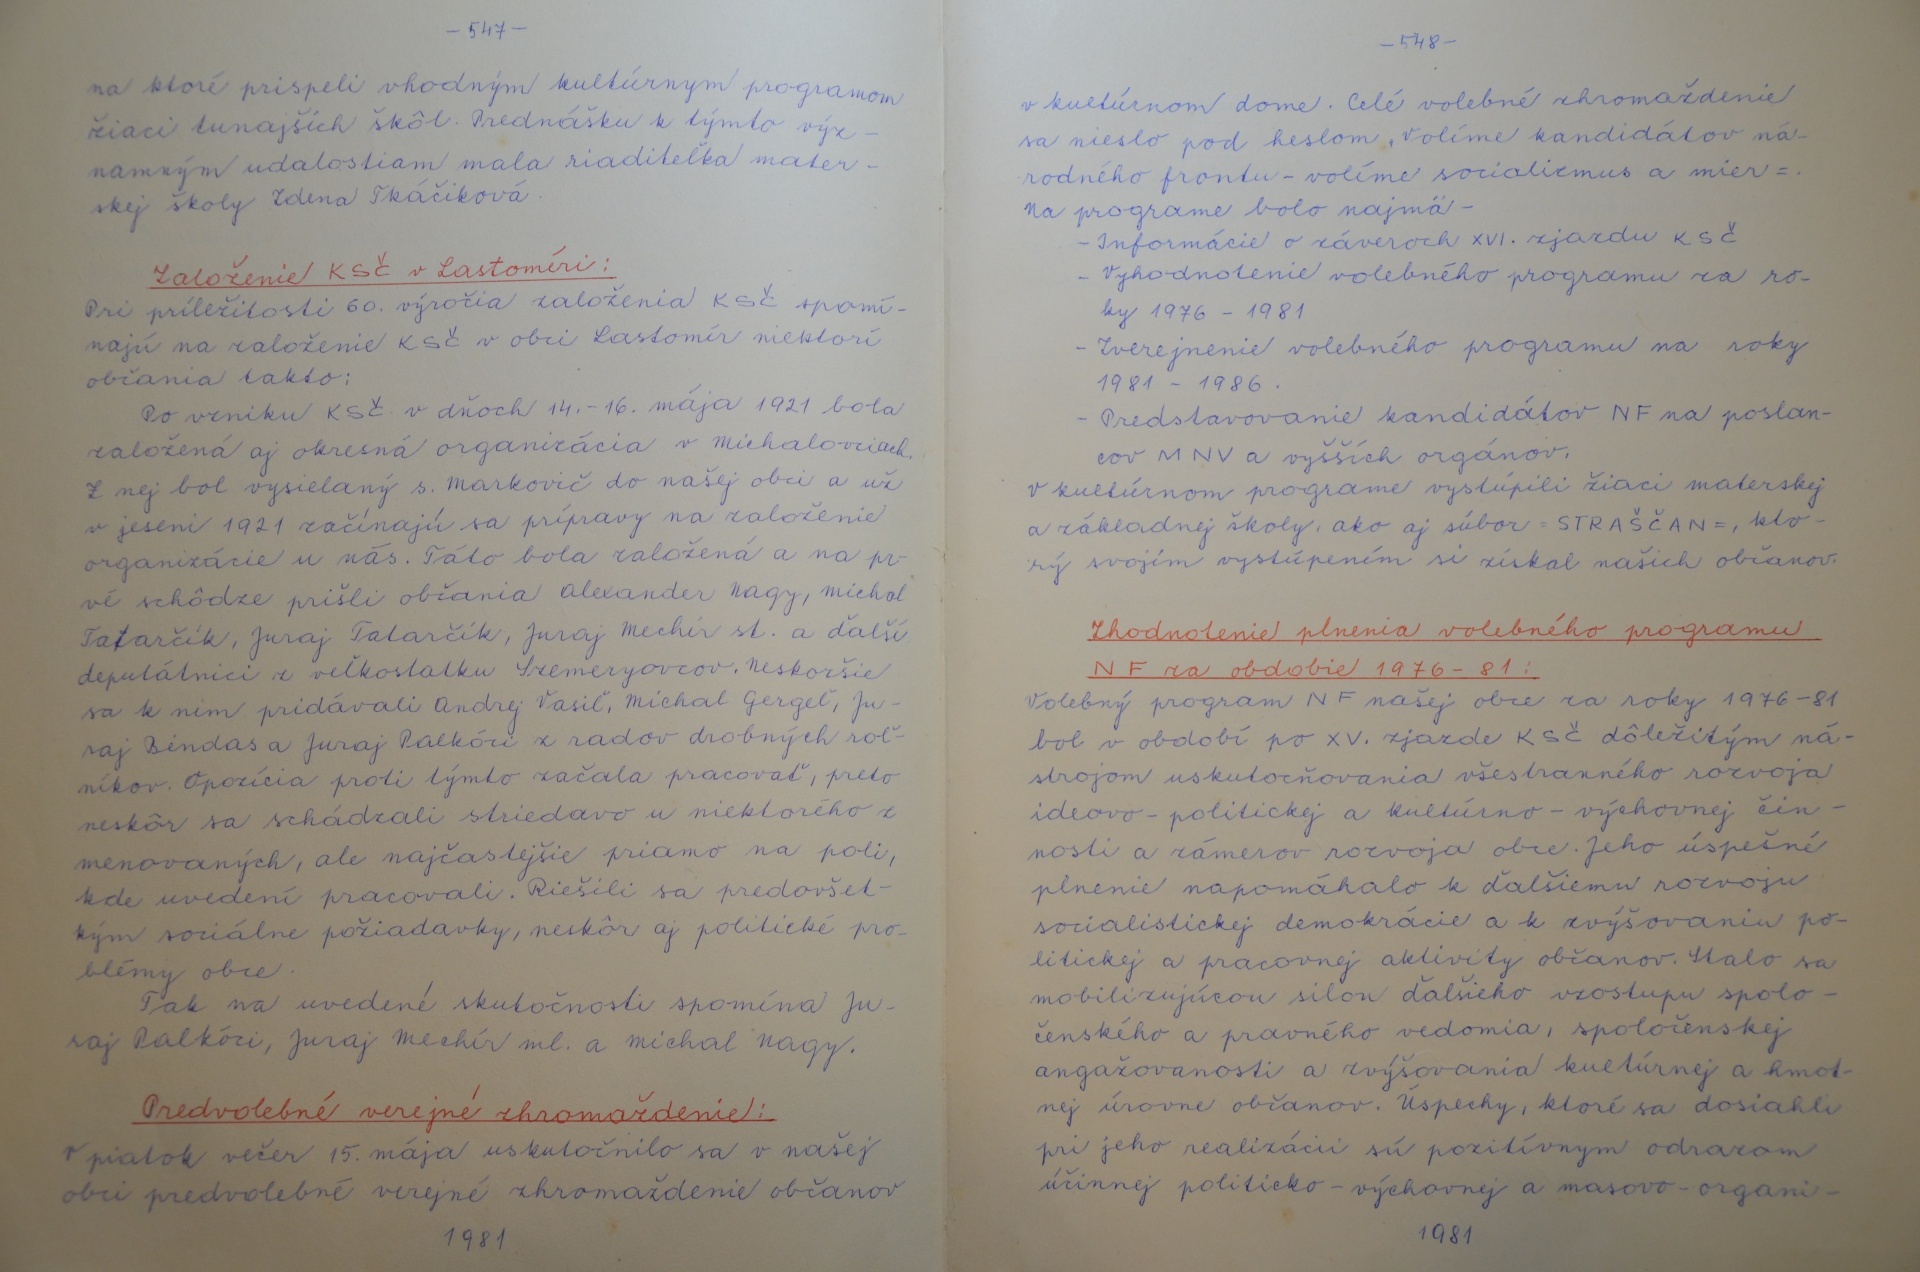 – 547 –
na ktoré prispeli vhodným kultúrnym programom
žiaci tunajších škôl. Prednášku k týmto výz-
namným udalostiam mala riaditeľka mater-
skej školy Zdena Tkáčiková.
Založenie KSČ v Lastomíri:
Pri príležitosti 60. výročia založenia KSČ spomí-
najú na založenie KSČ v obci Lastomír niektorí
občania takto:
Po vzniku KSČ v dňoch 14.-16. mája 1921 bola
založená aj okresná organizácia v Michalovciach.
Z nej bol vysielaný s. Markovič do našej obci a už
v jeseni 1921 začínajú sa prípravy na založenie
organizácie u nás. Táto bola založená a na pr-
vé schôdze prišli občania Alexander Nagy, Michal
Tatarčík, Juraj Tatarčík, Juraj Mechír st. a ďalší
deputátnici z veľkostatku Szemeryovcov. Neskoršie
sa k nim pridávali Andrej Vasiľ, Michal Gergeľ, Ju-
raj Bindas a Juraj Palkóci z radov drobných roľ-
níkov. Opozícia proti týmto začala pracovať, preto
neskôr sa schádzali striedavo u niektorého z
menovaných, ale najčastejšie priamo na poli,
kde uvedení pracovali. Riešili sa predovšet-
kým sociálne požiadavky, neskôr aj politické pro-
blémy obce.
Tak na uvedené skutočnosti spomína Ju-
raj Palkóci, Juraj Mechír ml. a Michal Nagy.
Predvolebné verejné zhromaždenie:
V piatok večer 15. mája uskutočnilo sa v našej
obci predvolebné verejné zhromaždenie občanov
1981
– 548 –
v kultúrnom dome. Celé volebné zhromaždenie
sa nieslo pod heslom „Volíme kandidátov ná-
rodného frontu – volíme socializmus a mier =.
Na programe bolo najmä –
- Informácie o záveroch XVI. zjazdu KSČ
- Vyhodnotenie volebného programu za ro-
ky 1976 – 1981
- Zverejnenie volebného programu na roky
1981 – 1986.
- Predstavovanie kandidátov NF na poslan-
cov MNV a vyšších orgánov.
V kultúrnom programe vystúpili žiaci materskej
a základnej školy, ako aj súbor = STRAŠČAN =, kto-
rý svojím vystúpením si získal našich občanov.
Zhodnotenie plnenia volebného programu
NF za obdobie 1976 – 81:
Volebný program NF našej obce za roky 1976–81
bol v období po XV. zjazde KSČ dôležitým ná-
strojom uskutočňovania všestranného rozvoja
ideovo-politickej a kultúrno-výchovnej čin-
nosti a zámerov rozvoja obce. Jeho úspešné
plnenie napomáhalo k ďalšiemu rozvoju
socialistickej demokrácie a k zvýšovaniu po-
litickej a pracovnej aktivity občanov. Stalo sa
mobilizujúcou silou ďalšieho vzostupu spolo-
čenského a pravného vedomia, spoločenskej
angažovanosti a zvýšovania kultúrnej a hmot-
nej úrovne občanov. Úspechy, ktoré sa dosiahli
pri jeho realizácii sú pozitívnym odrazom
účinnej politicko-výchovnej a masovo-organi-
1981